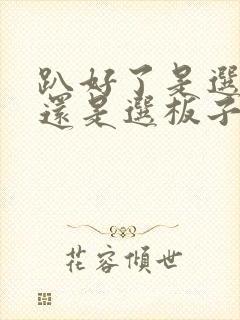 趴好了是選
還是選板子
花容傾世